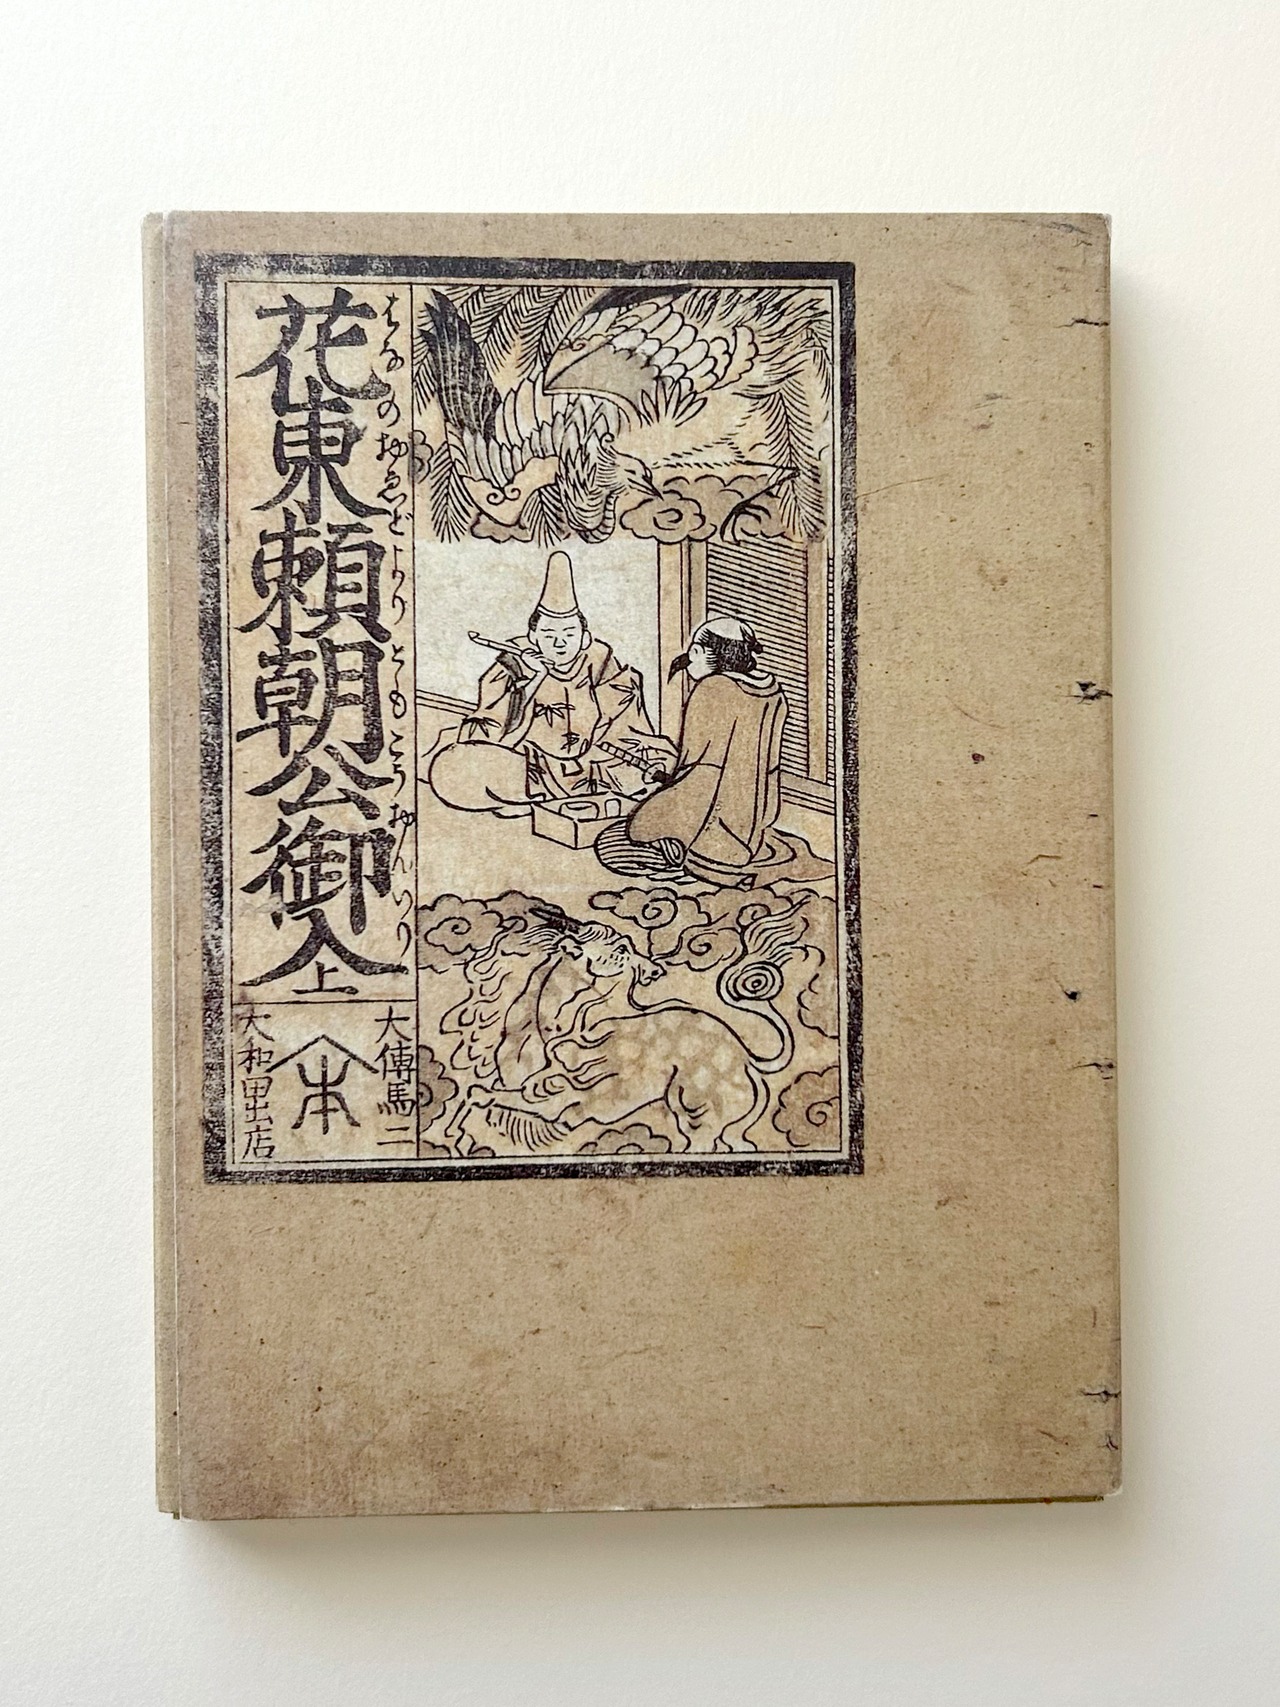 花東頼朝公御入 上
はなのおゑどよりともこうおんいり
大傳馬二
本
大和田出店